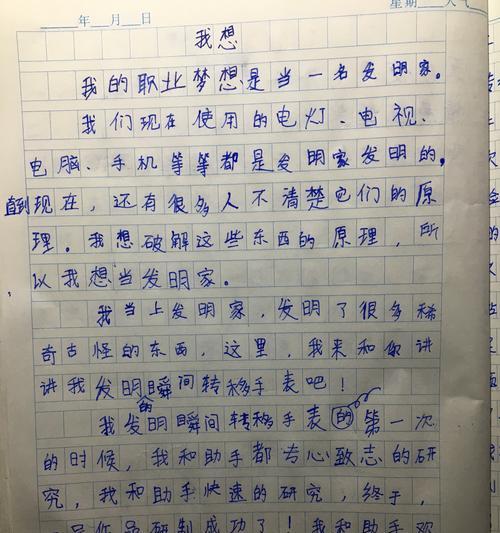 年 月 日 星期 天气
我想
我的职业梦想是当一名发明家。
我们现在使用的电灯、电视、
电脑、手机等等都是发明家发明的。
直到现在，还有很多人不清楚它们的原
理。我想破解这些东西的原理，所
以我想当发明家。
我当上发明家，发明了很多稀
奇古怪的东西，这里，我来和你讲
讲我发明瞬间转移手表吧！
的
我发明瞬间转移手表的第一次
的时候，我和助手都专心致志的研
究，我和助手快速的研究，终于，
品研制成功了！我和助手观